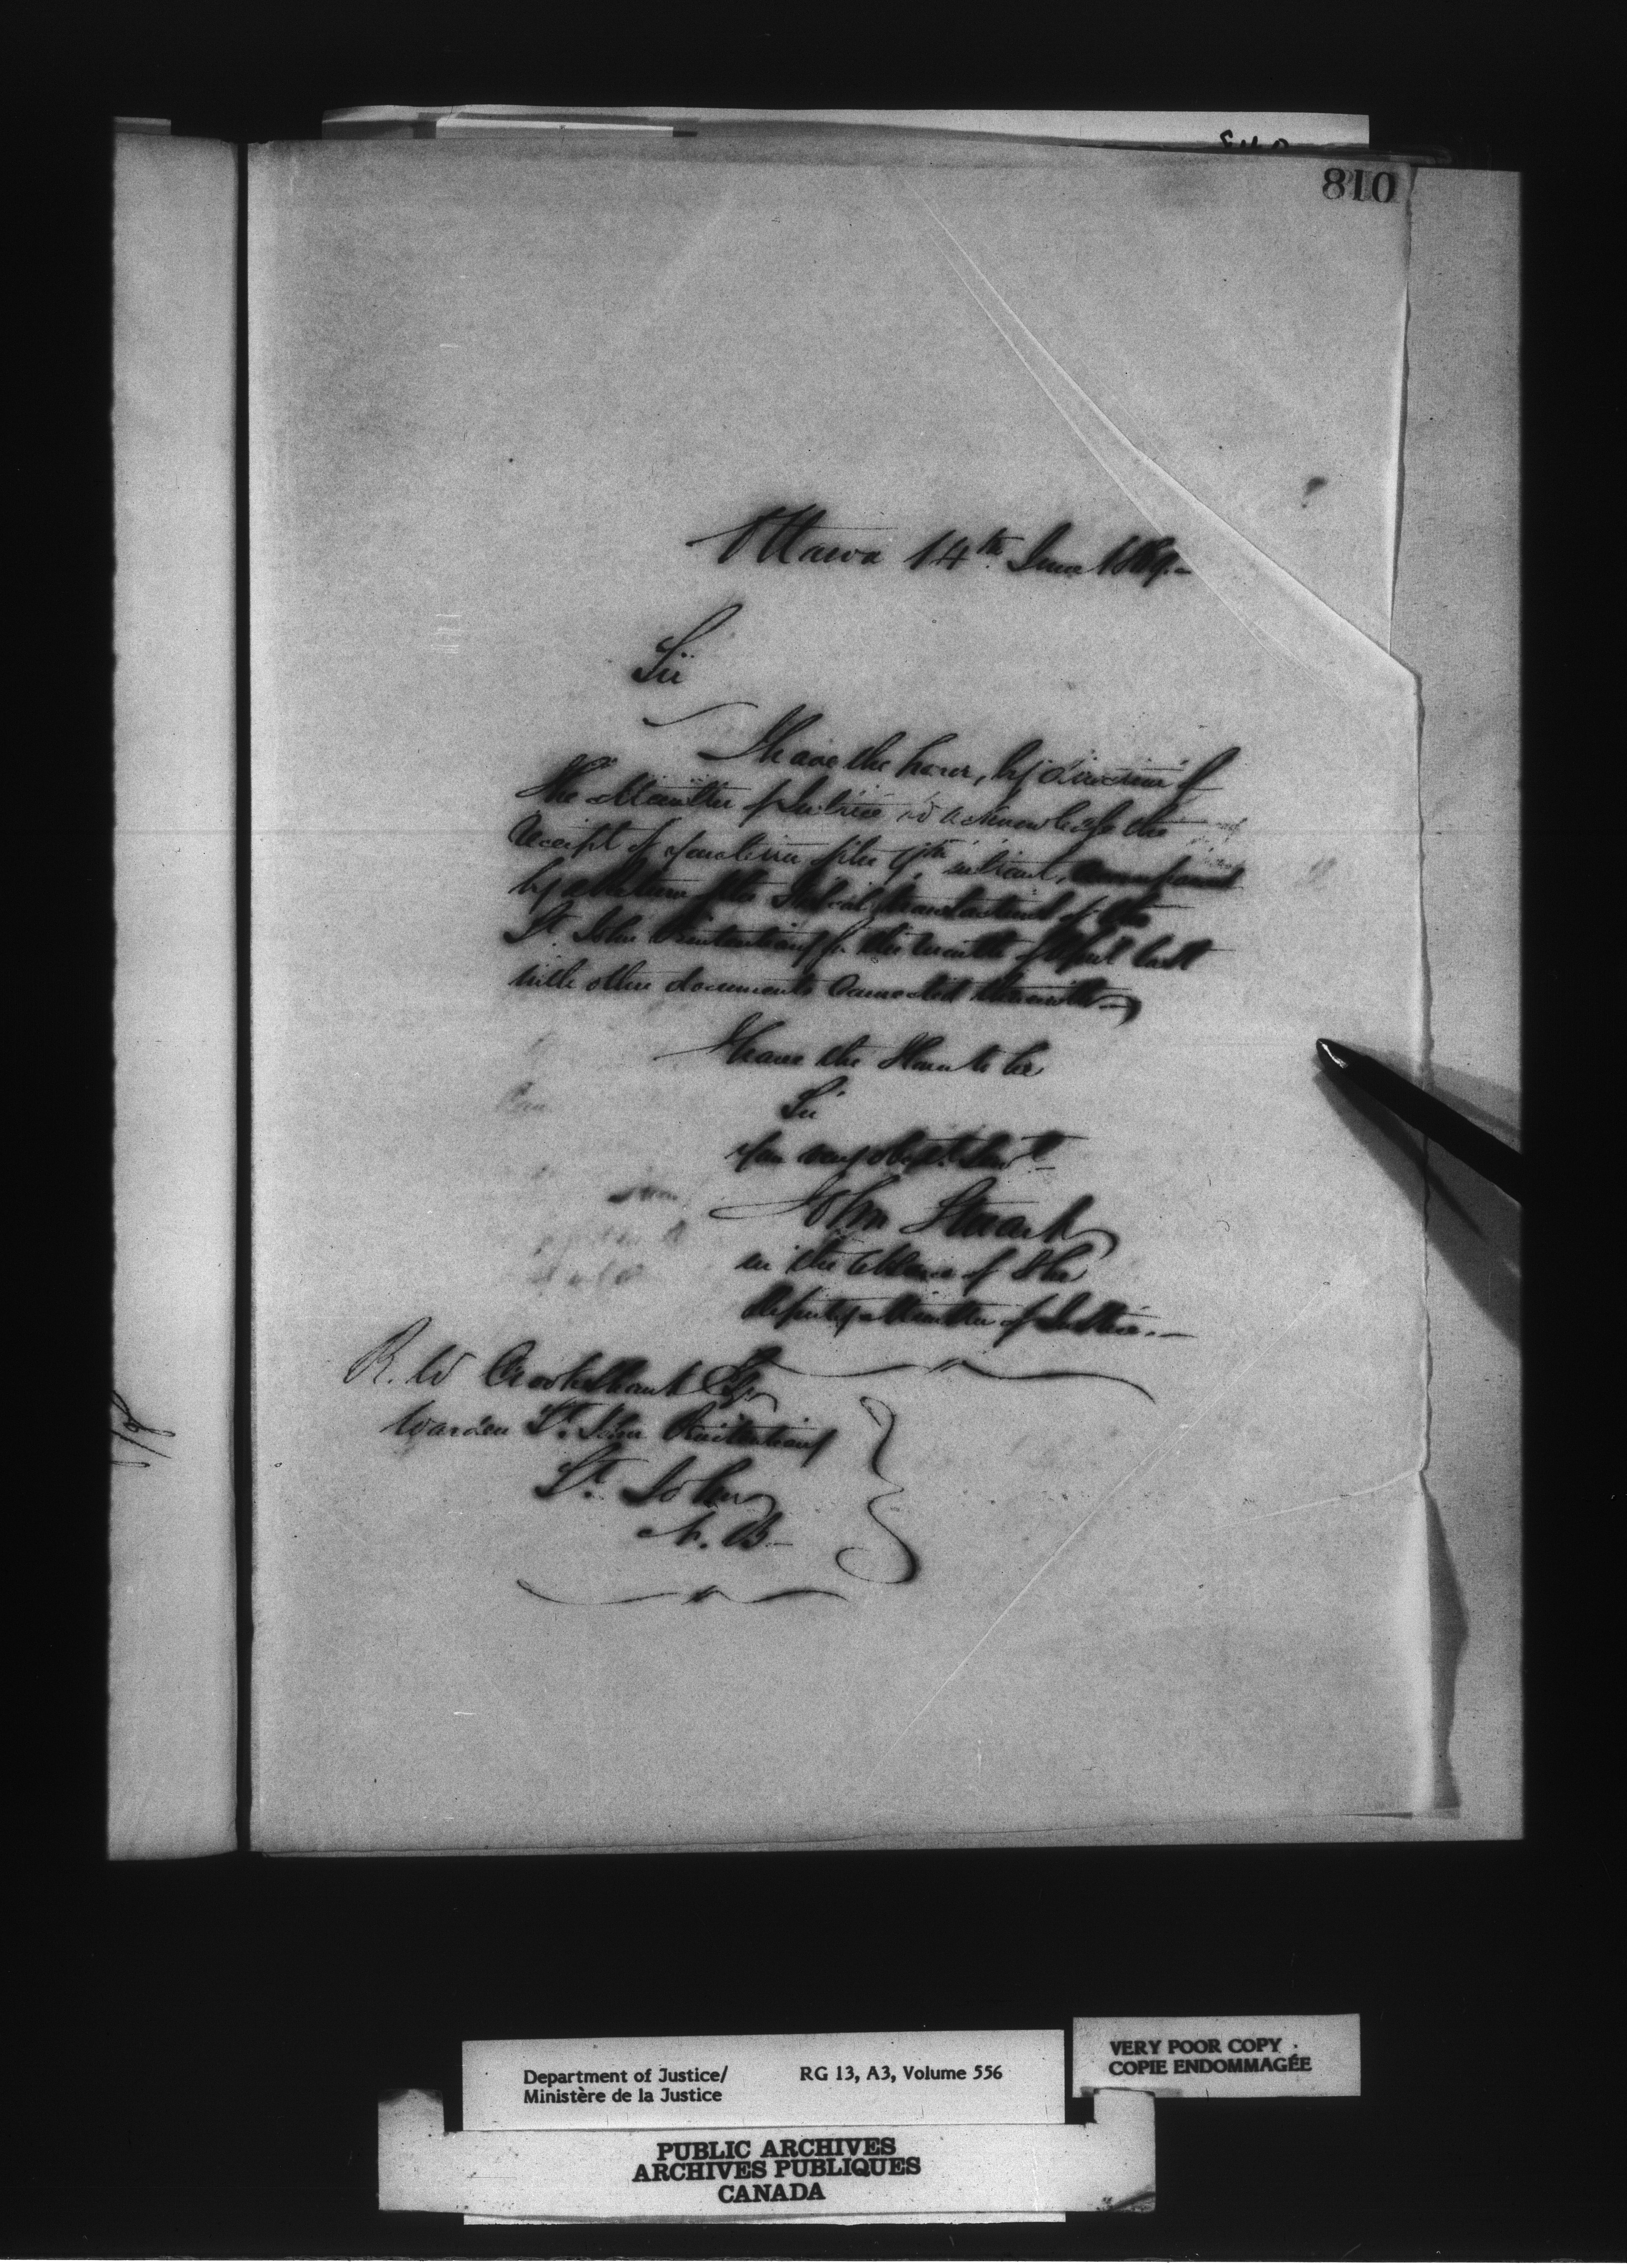 810
Ottawa 14th June 1869.-
Sir
I have the honor, by direction of
the Minister of Justice to acknowledge the
receipt of your letter of the 9th instant, accompanied
by a Return of the transactions of the
St. John Penitentiary for the month of April last
with other documents connected therewith-
I have the Honor to be
Sir
Your very obedt. Servt.
John Stuart
in the absence of the
Deputy Minister of Justice.-
R. W Crookshank Esq
Warden St. John Penitentiary
St. John
N. B-
Department of Justice/ RG 13, A3, Volume 556
Ministère de la Justice
VERY POOR COPY
COPIE ENDOMMAGÉE
PUBLIC ARCHIVES
ARCHIVES PUBLIQUES
CANADA